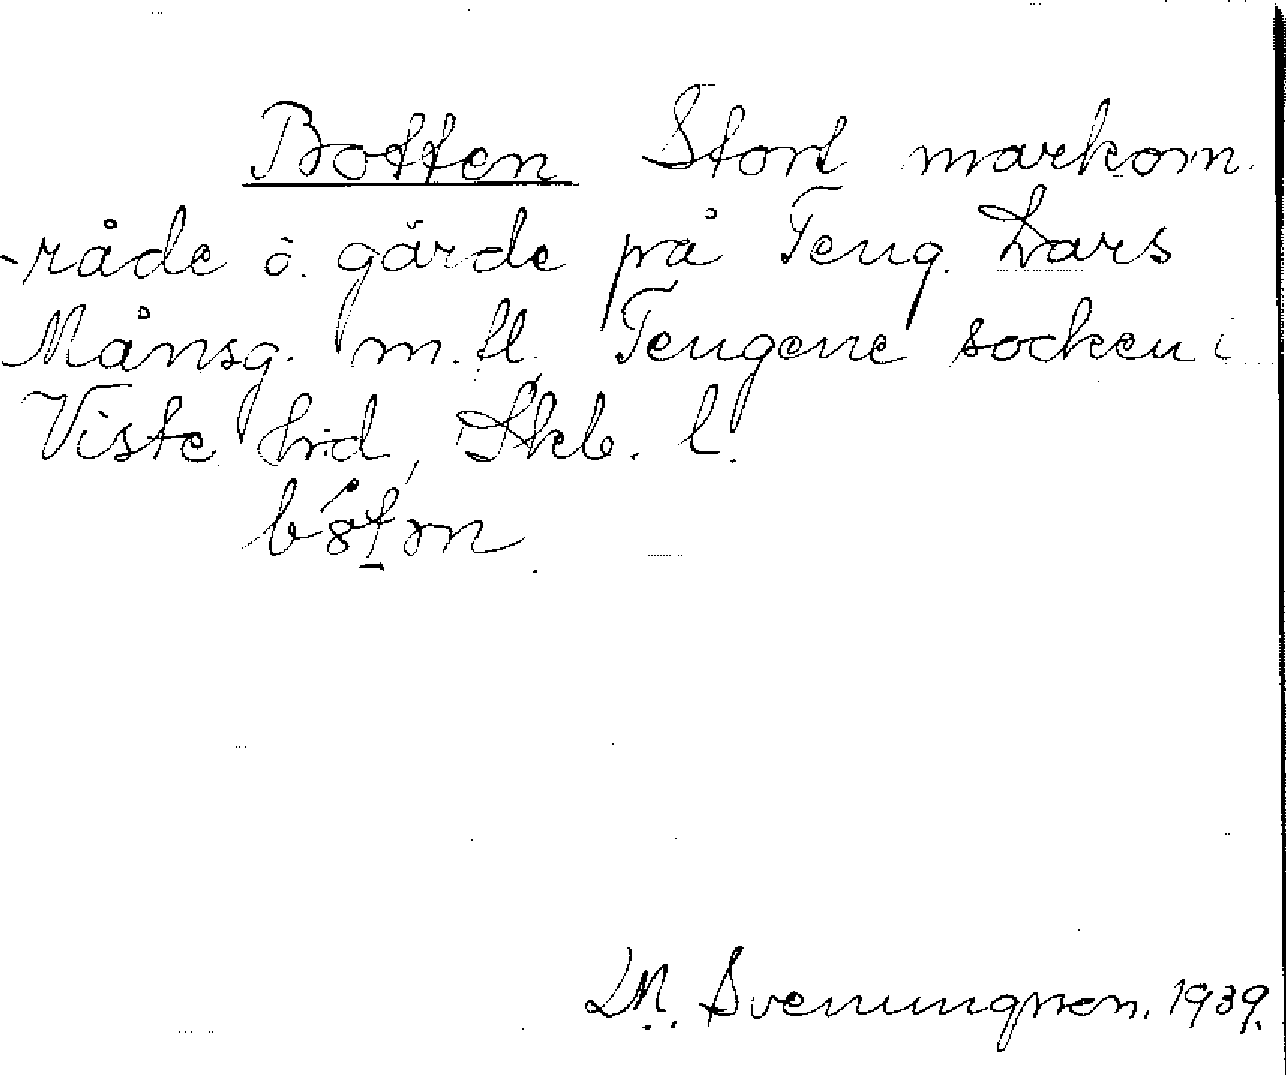 Botten Stort markom-
-råde o. gärde på Teng. Lars
Månsg. m.fl. Tengene socken i
Viste hrd, Skb. l.
LM. Svenungsson. 1939.